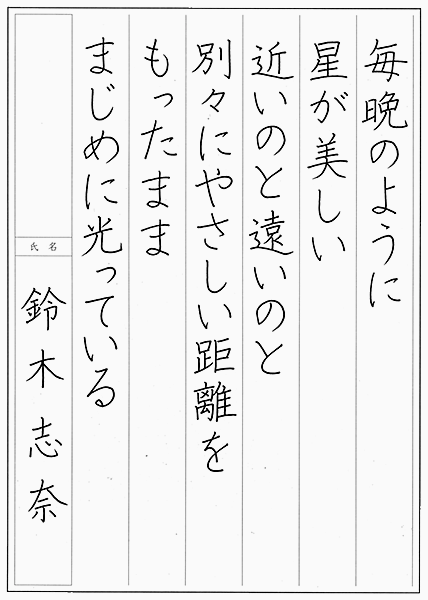 毎晩のように
星が美しい
近いのと遠いのと
別々にやさしい距離を
もったまま
まじめに光っている
氏名
鈴木志奈